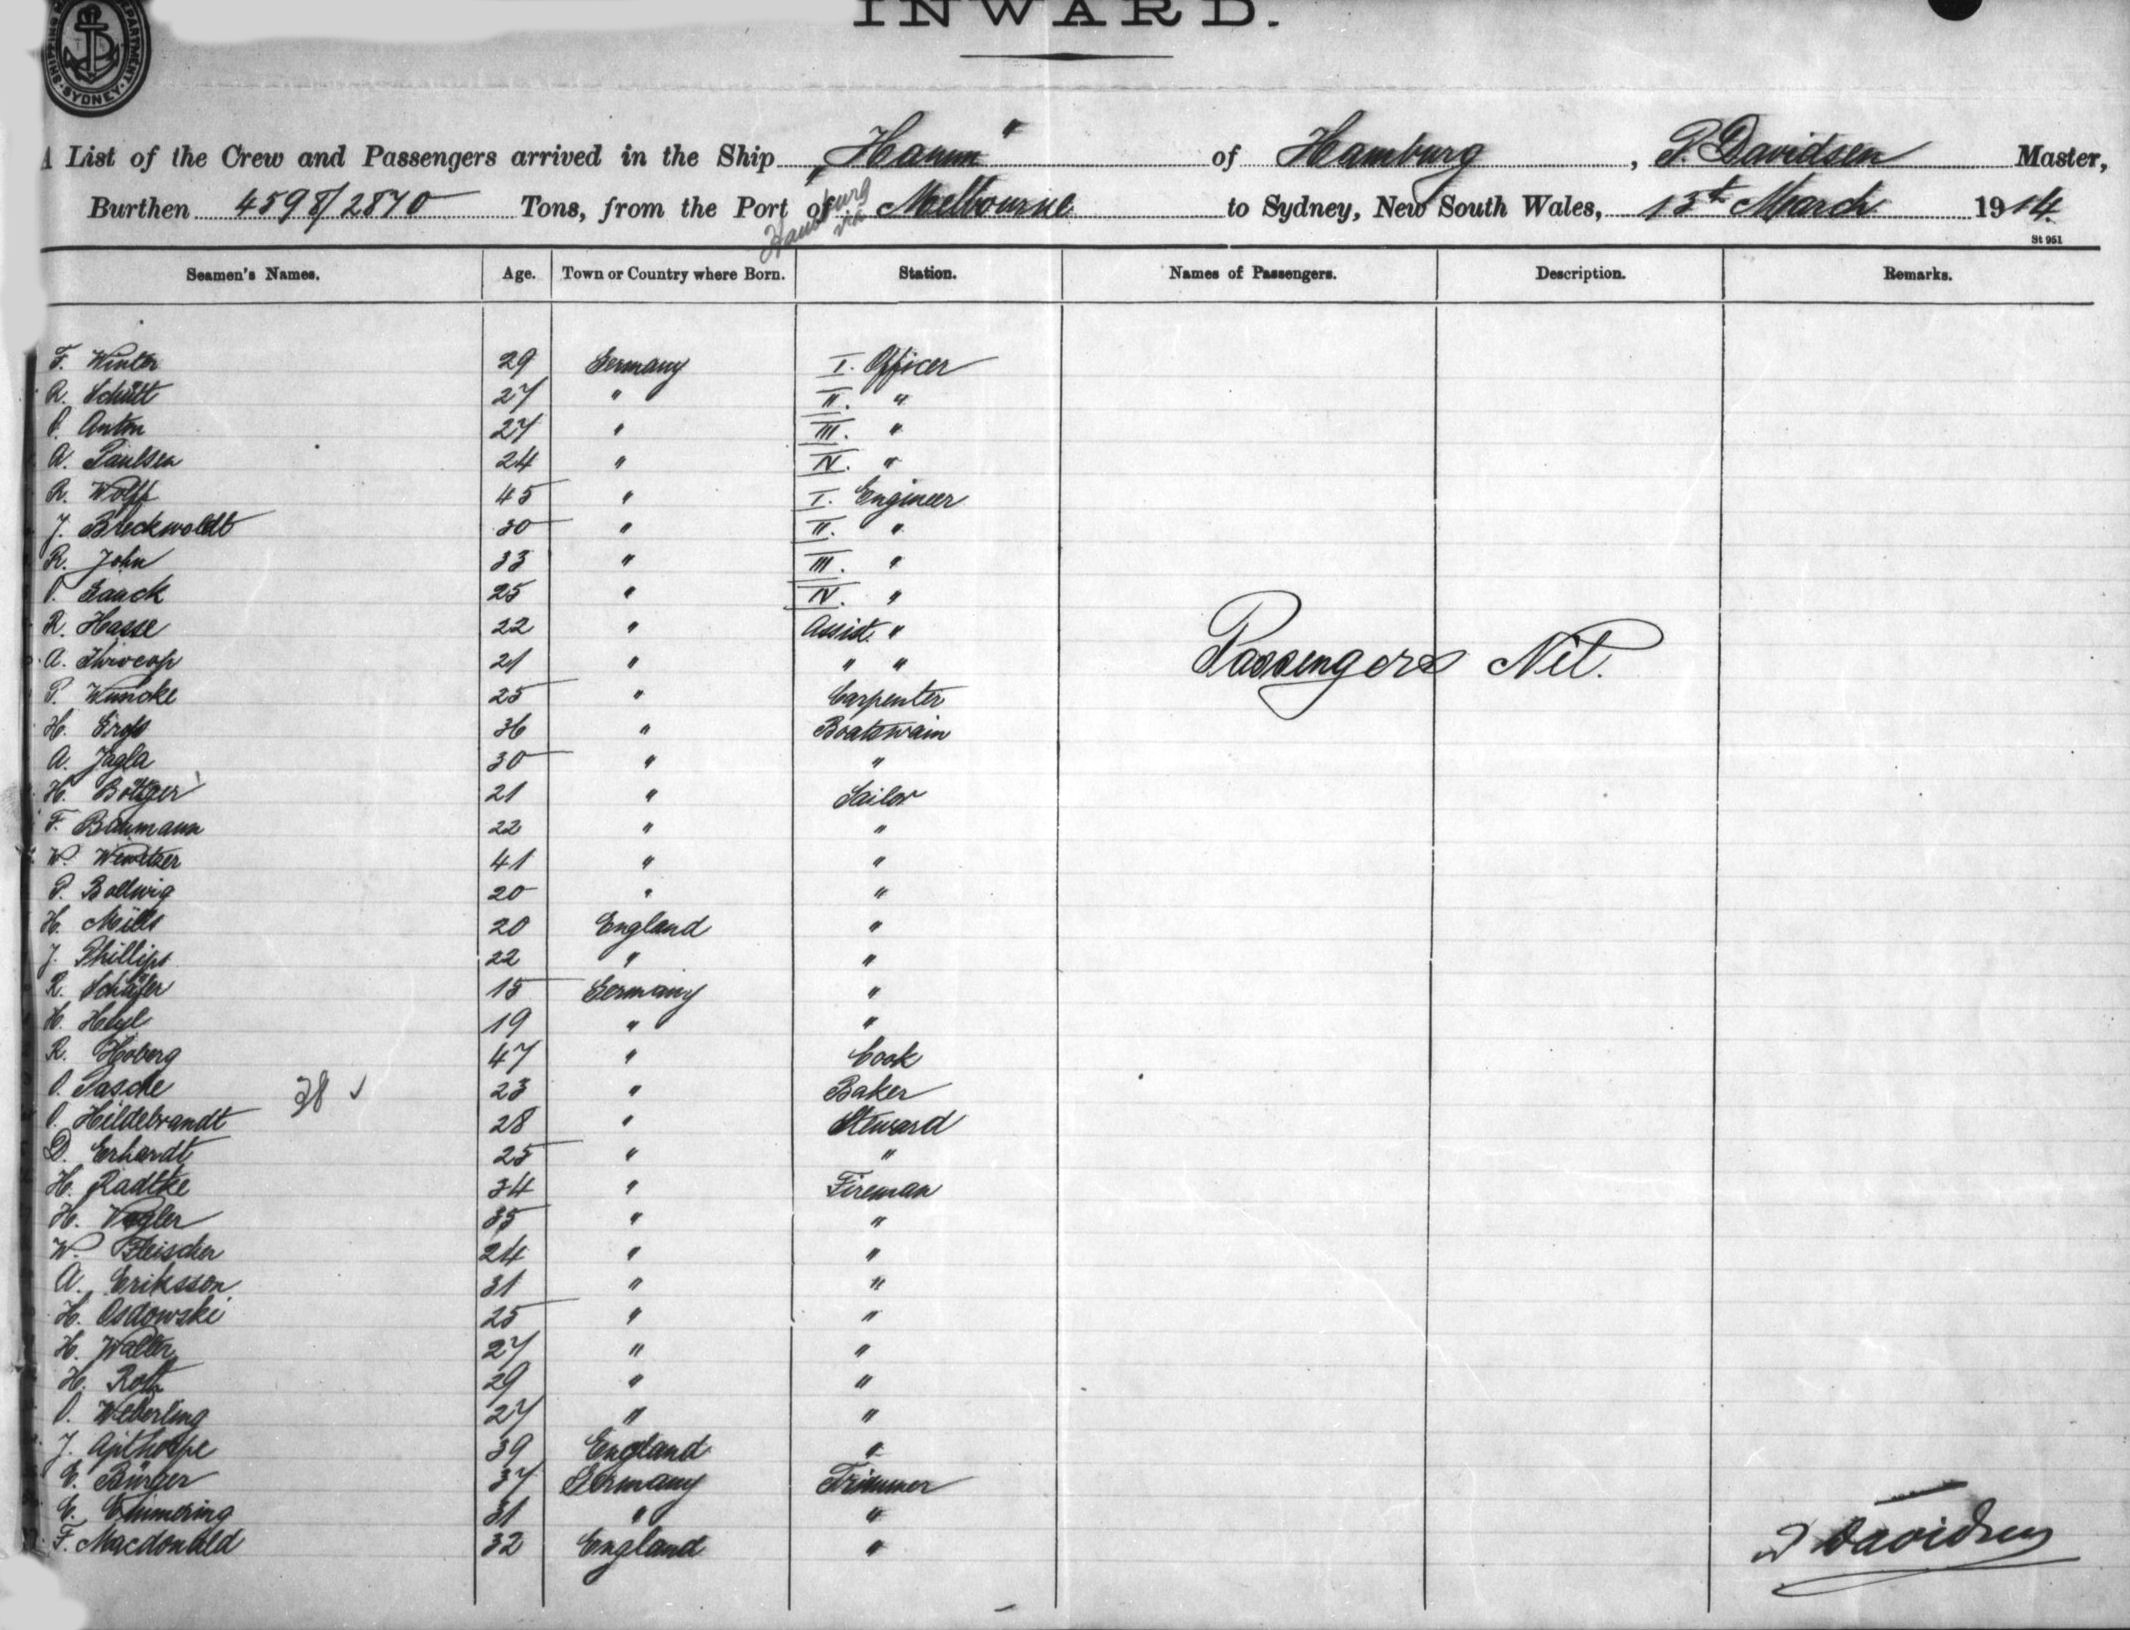 INWARD.
SHIPPING DEPARTMENT SYDNEY
A List of the Crew and Passengers arrived in the Ship "Hamm" of Hamburg, P. Davidsen Master,
Hamburg via
Burthen 4598/2870 Tons, from the Port of Melbourne to Sydney, New South Wales, 13th March 1914.
St 951
Seamen's Names. Age. Town or Country where Born. Station. Names of Passengers. Description. Remarks.
F. Winter 29 Germany I. Officer
R. Schütt 27 " II. "
P. Anton 27 " III. "
A. Paulsen 24 " IV. "
R. Wolff 45 " I. Engineer
J. Breckwoldt 30 " II. "
R. John 33 " III. "
25 " IV. "
R. Hasse 22 " Assist. "
A. 21 " " "
P. Wuncke 25 " Carpenter
Passengers Nil.
H. 36 " Boatswain
A. Jagla 30 " "
H. Böttger 21 " Sailor
F. Baumann 22 " "
W. 41 " "
P. Bollwig 20 " "
H. Mills 20 England "
J. Phillips 22 " "
R. Schäfer 15 Germany "
H. Heyl 19 " "
R. Hoberg 47 " Cook
O. Pasche 38 ✓ 23 " Baker
O. Hildebrandt 28 " Steward
D. Erhardt 25 " "
H. Radtke 34 " Fireman
H. Vogler 35 " "
W. Fleischer 24 " "
A. Eriksson 31 " "
H. Osdowski 25 " "
H. Walter 27 " "
H. Roth 29 " "
O. Weberling 27 " "
J. Apthorpe 39 England "
E. Bürger 37 Germany Trimmer
E. Emmering 31 " "
F. Macdonald 32 England "
P Davidsen